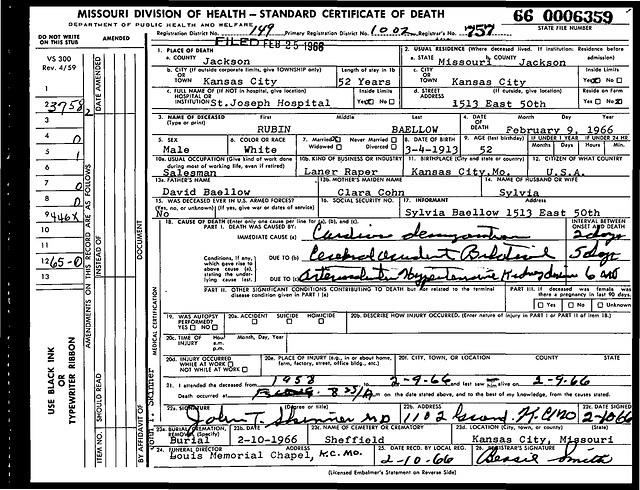 MISSOURI DIVISION OF HEALTH — STANDARD CERTIFICATE OF DEATH 66 0006359
DEPARTMENT OF PUBLIC HEALTH AND WELFARE
STATE FILE NUMBER
Registration District No. 149 Primary Registration District No. 1002 Registrar's No. 757
FILED FEB 25 1966
DO NOT WRITE ON THIS STUB
AMENDED
VS 300
Rev. 4/59
DATE AMENDED
1. PLACE OF DEATH
a. COUNTY Jackson
2. USUAL RESIDENCE (Where deceased lived. If institution: Residence before admission)
a. STATE Missouri b. COUNTY Jackson
b. CITY (If outside corporate limits, give TOWNSHIP only) OR TOWN Kansas City
Length of stay in 1b 52 Years
c. CITY OR TOWN Kansas City
Inside Limits Yes No
c. FULL NAME OF (If NOT in hospital, give location) HOSPITAL OR INSTITUTION St.Joseph Hospital
Inside Limits Yes No
d. STREET ADDRESS (If outside, give location) 1513 East 50th
Reside on Farm Yes No
3. NAME OF DECEASED (Type or print) First Middle Last
RUBIN BAELLOW
4. DATE OF DEATH Month Day Year
February 9, 1966
5. SEX Male
6. COLOR OR RACE White
7. Married Never Married Widowed Divorced
8. DATE OF BIRTH 3-4-1913
9. AGE (last birthday) 52
IF UNDER 1 YEAR Months Days
IF UNDER 24 HR Hours Min.
10a. USUAL OCCUPATION (Give kind of work done during most of working life, even if retired) Salesman
10b. KIND OF BUSINESS OR INDUSTRY Laner Raper
11. BIRTHPLACE (City and state or country) Kansas City,Mo.
12. CITIZEN OF WHAT COUNTRY U.S.A.
13a. FATHER'S NAME David Baellow
13b. MOTHER'S MAIDEN NAME Clara Cohn
14. NAME OF HUSBAND OR WIFE Sylvia
15. WAS DECEASED EVER IN U.S. ARMED FORCES? (Yes, no, or unknown) (If yes, give war or dates of service) No
16. SOCIAL SECURITY NO.
17. INFORMANT Address
Sylvia Baellow 1513 East 50th
18. CAUSE OF DEATH (Enter only one cause per line for (a), (b), and (c).
PART I. DEATH WAS CAUSED BY:
INTERVAL BETWEEN ONSET AND DEATH
IMMEDIATE CAUSE (a) Cardiac 2 days
Conditions, if any, which gave rise to above cause (a), stating the underlying cause last.
DUE TO (b) Cerebral accident Bilateral 5 days
DUE TO (c) Hypertensive 6
PART II. OTHER SIGNIFICANT CONDITIONS CONTRIBUTING TO DEATH but not related to the terminal disease condition given in PART I (a)
PART III. If deceased was female was there a pregnancy in last 90 days.
Yes No Unknown
19. WAS AUTOPSY PERFORMED? YES NO
20a. ACCIDENT SUICIDE HOMICIDE
20b. DESCRIBE HOW INJURY OCCURRED. (Enter nature of injury in Part I or Part II of item 18.)
20c. TIME OF INJURY Hour a.m. p.m. Month, Day, Year
20d. INJURY OCCURRED WHILE AT WORK NOT WHILE AT WORK
20e. PLACE OF INJURY (e.g., in or about home, farm, factory, street, office bldg., etc.)
20f. CITY, TOWN, OR LOCATION COUNTY STATE
21. I attended the deceased from 1958 to 2-9-66 and last saw him alive on 2-9-66
Death occurred at on the date stated above, and to the best of my knowledge, from the causes stated.
22a. SIGNATURE (Degree or title) John T. Skinner MD
22b. ADDRESS 1102 Grand, K.C.MO
22c. DATE SIGNED 2-10-66
23a. BURIAL, CREMATION, REMOVAL (Specify) Burial
23b. DATE 2-10-1966
23c. NAME OF CEMETERY OR CREMATORY Sheffield
23d. LOCATION (City, town, or county) (State) Kansas City, Missouri
24. FUNERAL DIRECTOR ADDRESS Louis Memorial Chapel, K.C. MO.
25. DATE RECD. BY LOCAL REG. 2-10-66
26. REGISTRAR'S SIGNATURE Bessie Smith
(Licensed Embalmer's Statement on Reverse Side)
1
2
3
4 0
5 1
6
7 0
8 0
9 446X
10
11
12 65-0
13
USE BLACK INK OR TYPEWRITER RIBBON
AMENDMENTS ON THIS RECORD ARE AS FOLLOWS
ITEM NO. SHOULD READ INSTEAD OF
BY AFFIDAVIT OF
DOCUMENT
MEDICAL CERTIFICATION
John T. Skinner